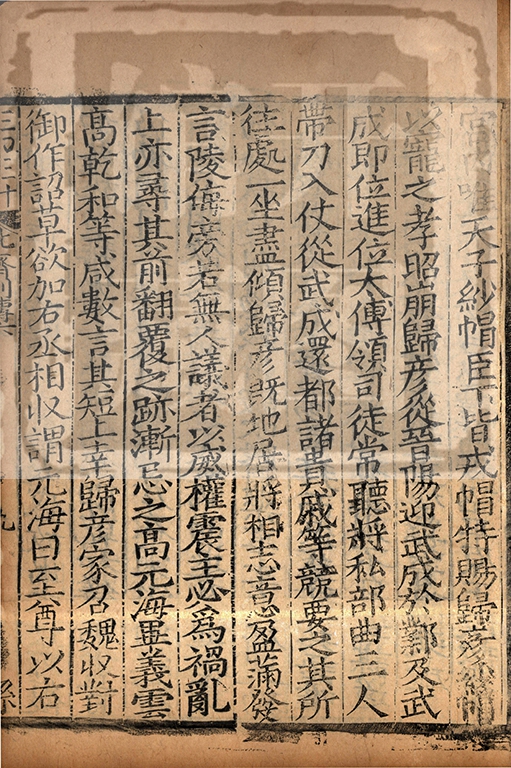 宮內唯天子紗帽臣下皆戎帽特賜歸彥紗帽
以寵之孝昭崩歸彥從晉陽迎武成於鄴及武
成即位進位太傅領司徒常聽將私部曲三人
帶刀入仗從武成還都諸貴戚等競要之其所
往處一坐盡傾歸彥既地居將相志意盈滿發
言陵侮旁若無人議者以威權震主必為禍亂
上亦尋其前翻覆之跡漸忌之高元海畢義雲
高乾和等咸數言其短上幸歸彥家召魏收對
御作詔草欲加右丞相收謂元海曰至尊以右
北齊列傳六
九